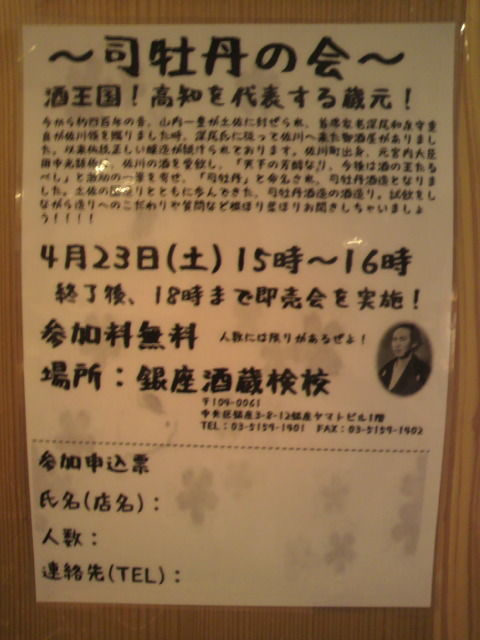 ～司牡丹の会～
酒王国！高知を代表する蔵元！
今から約四百年の昔、山内一豊が土佐に封ぜられ、首席家老深尾和泉守重
良が佐川領を賜りました時、深尾氏に従って佐川へ来た御酒屋がありまし
た。以来伝統正しい醸造が続けられております。佐川町出身、元宮内大臣
田中光顕伯、佐川の酒を愛飲し、「天下の芳醇なり、今後は酒の王たる
べし」と激励の一筆を寄せ、「司牡丹」と命名され、司牡丹酒造となりま
した。土佐のとともに歩んできた、司牡丹酒造の酒造り。試飲をし
ながら造りへのこだわりや質問など根ほり葉ほりお聞きしちゃいましょ
う！！！！
4月23日(土) 15時～16時
終了後、18時まで即売会を実施！
参加料無料 人数には限りがあるぜよ！
場所：銀座酒蔵検校
〒104-0061
中央区銀座3-8-12銀座ヤマトビル1階
TEL：03-5159-1901 FAX：03-5159-1902
参加申込票
氏名(店名)：
人数：
連絡先(TEL)：